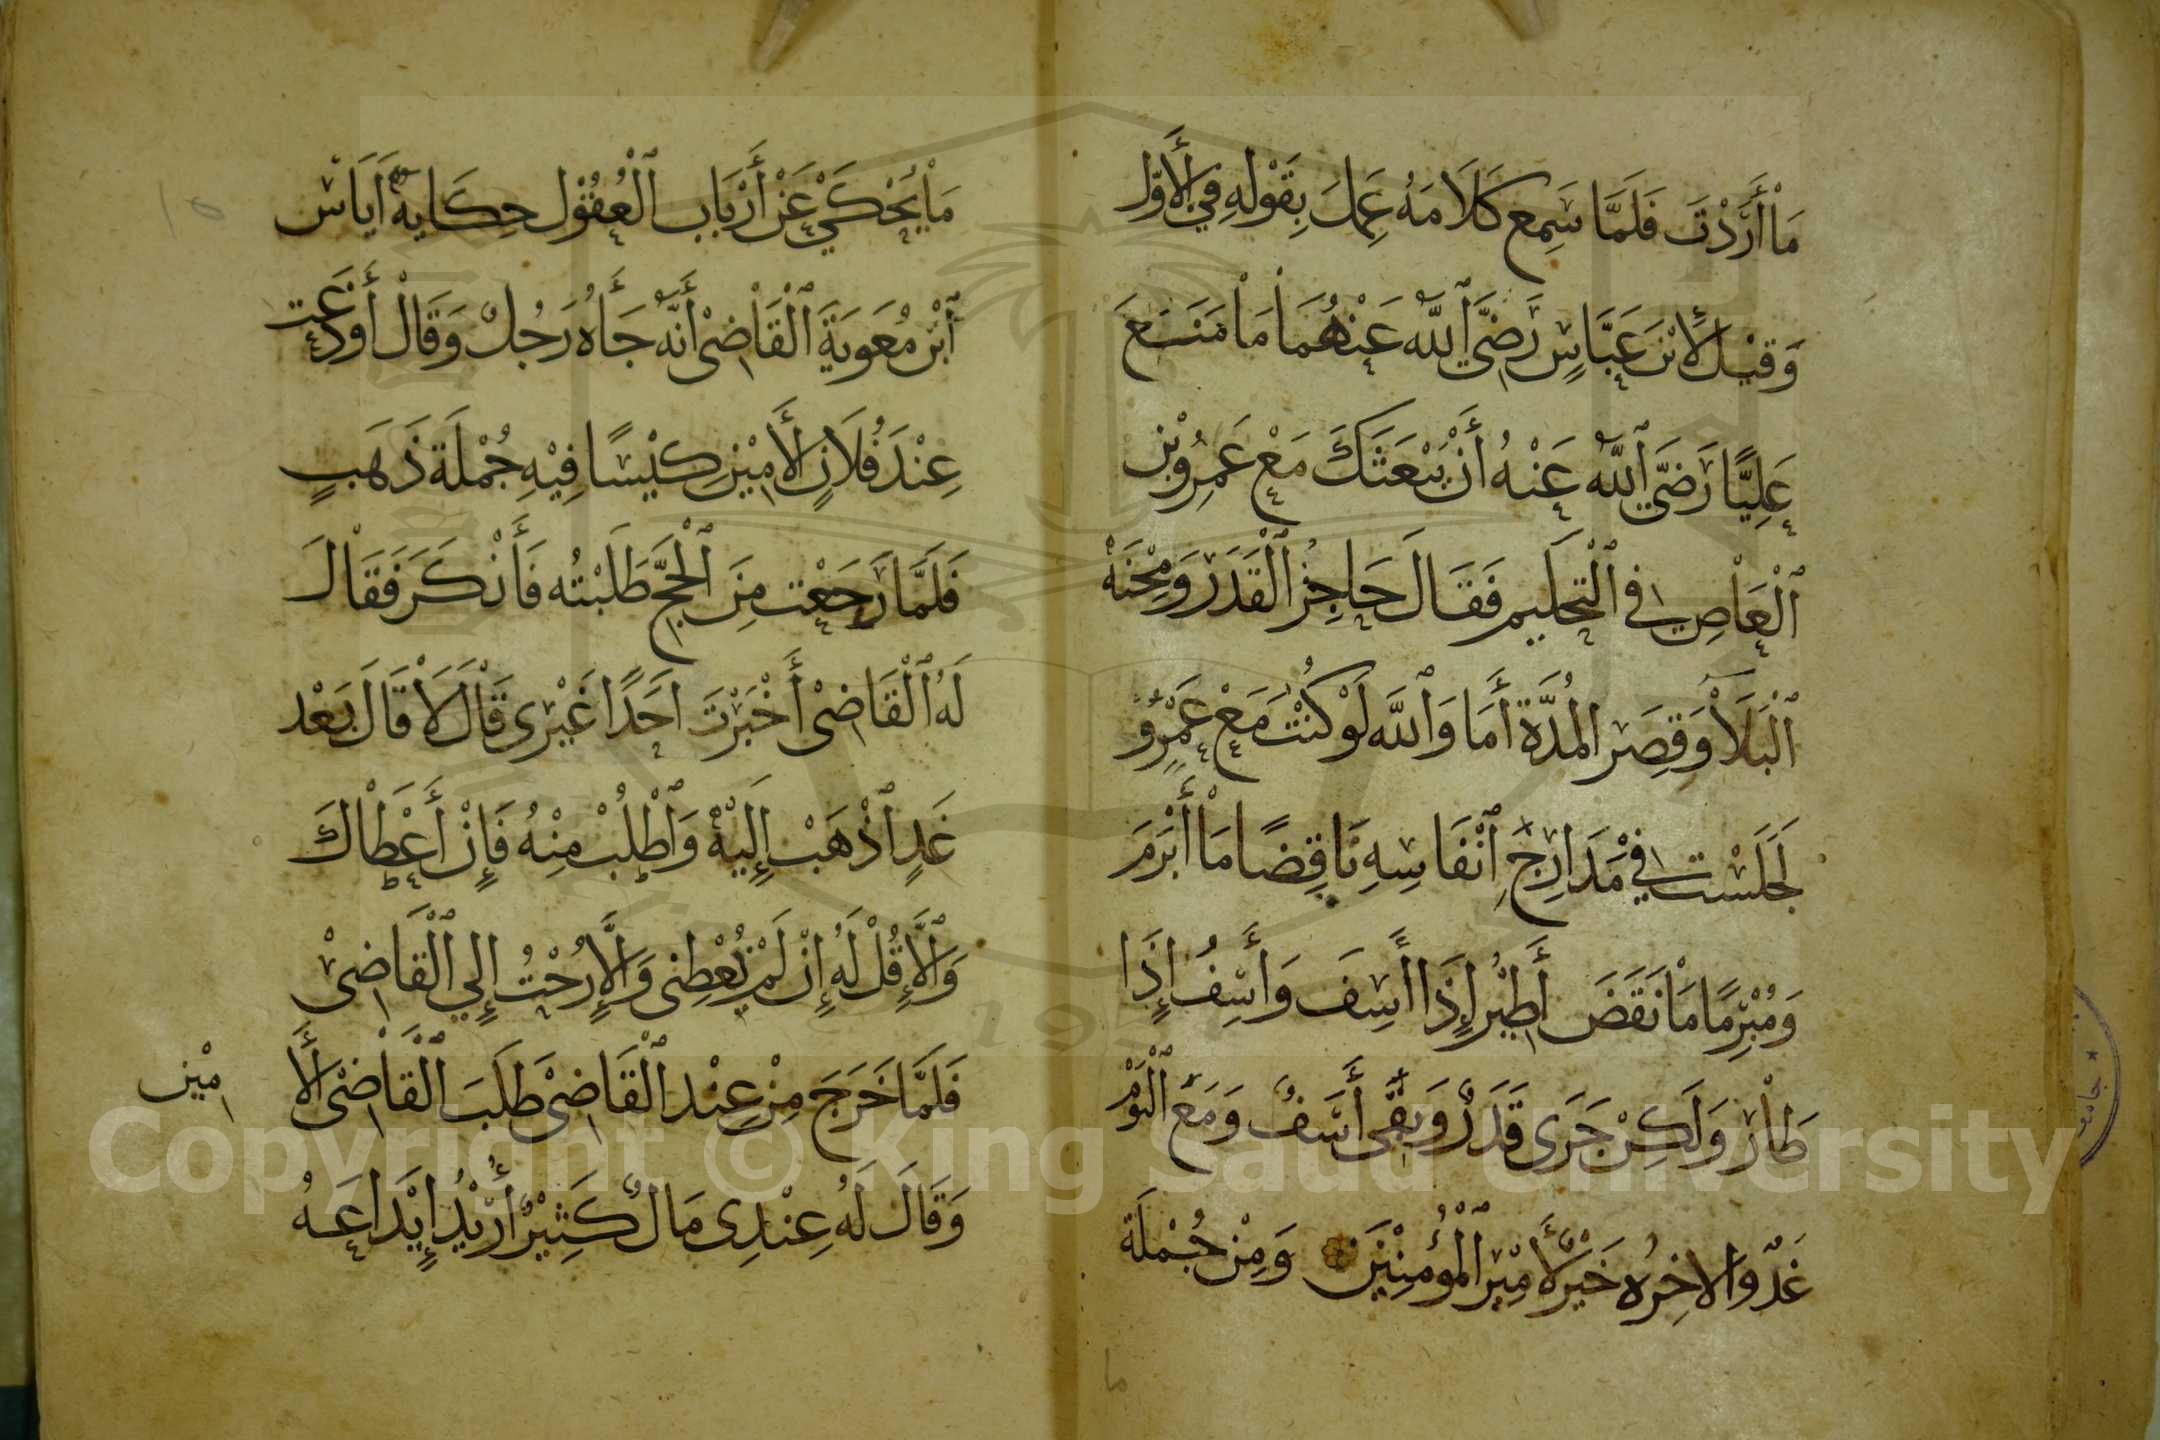 مَاْ أَرَدْتَ فَلَمَّا سَمِع كَلَامَهُ عَمِلَ بِقَوْلِهِ فِي الْأَوّل
وَقِيْلَ لِابْنِ عَبَّاسٍ رَضِيَ اللّٰه عَنْهُمَا مَاْ مَنَعَ
عَلِيًّا رَضِيَ اللّٰه عَنْهُ أَنْ يَبْعَثَكَ مَعْ عَمِرُوْبْنِ
الْعَاْصِي في الْتَحَلِيم فَقَالَ حَاجِزُ الْقَدَر وَمِحْنَهْ
الْبَلَاْءِ وَقِصَر المُدَّة أَمَا وَاللَّه لَوْ كُنْتُ مَعْ عَمْرٍو
لَجَلَسْت فِيْ مَدَارِجَ اَنْفَاسِهِ نَاقِضًا مَاْ أَبْرَمَ
وَمُبْرِمًا مَاْ نَقَضَ أَطِيْرُ إِذَا أَسِفَ وَأَسِفُ إِذَا
طَاْر وَلَكِنْ جَرَى قَدَرٌ وَبَقَّى أَسَفٌ وَمَعْ الْيَوْمْ
غَدٌ وَالاخِرُه خَيْرٌ لأَمِيْرِ الْمُؤْمِنِيْنَ وَمِنْ جُمْلَة
ما
مَاْ يُحْكَيْ عَنْ أَرْبَاب الْعُقُوْل حِكَايةُ اَيَاسْ
اَبْن مُعَوِيَةَ الْقَاْضِيْ أَنَّهُ جَأَهُ رَجُلٌ وَقَالْ أَوْدَعْت
عِنْدَ فُلَانٍ الأَمِيْنِ كِيْسًا فِيْهِ جُمْلَة ذَهَبٍ
فَلَمَّا رَجَعْت مِنَ الْحَجَّ طَلَبْتُه فَأَنْكَرَ فَقَاْلَ
لَهُ الْقَاضِيْ أَخْبَرْتَ اَحَدًا غَيْرِى قَاْلَ لَاْ قَالَ بَعْد
غَدٍ اذْهَبْ إِلَيْهْ وَاْطْلُبْ مِنْهُ فَإِنْ أَعْطَاْكَ
وَاَلَّا قُلْ لَهُ إِنْ لَمْ تُعْطِنِى وَاَلَّا رُحْتُ إِلي الْقَاضِىْ
فَلَمَّا خَرَجَ مِنْ عِنْد الْقَاضِىْ طَلَبَ الْقَاْضِىْ الأَ
امِيْن
وَقَالَ لَهُ عِنْدِى مَالٌ كَثِيْرٌ أُرِيْدُ إِيْدَاعَهُ
Copyright © King Saud University